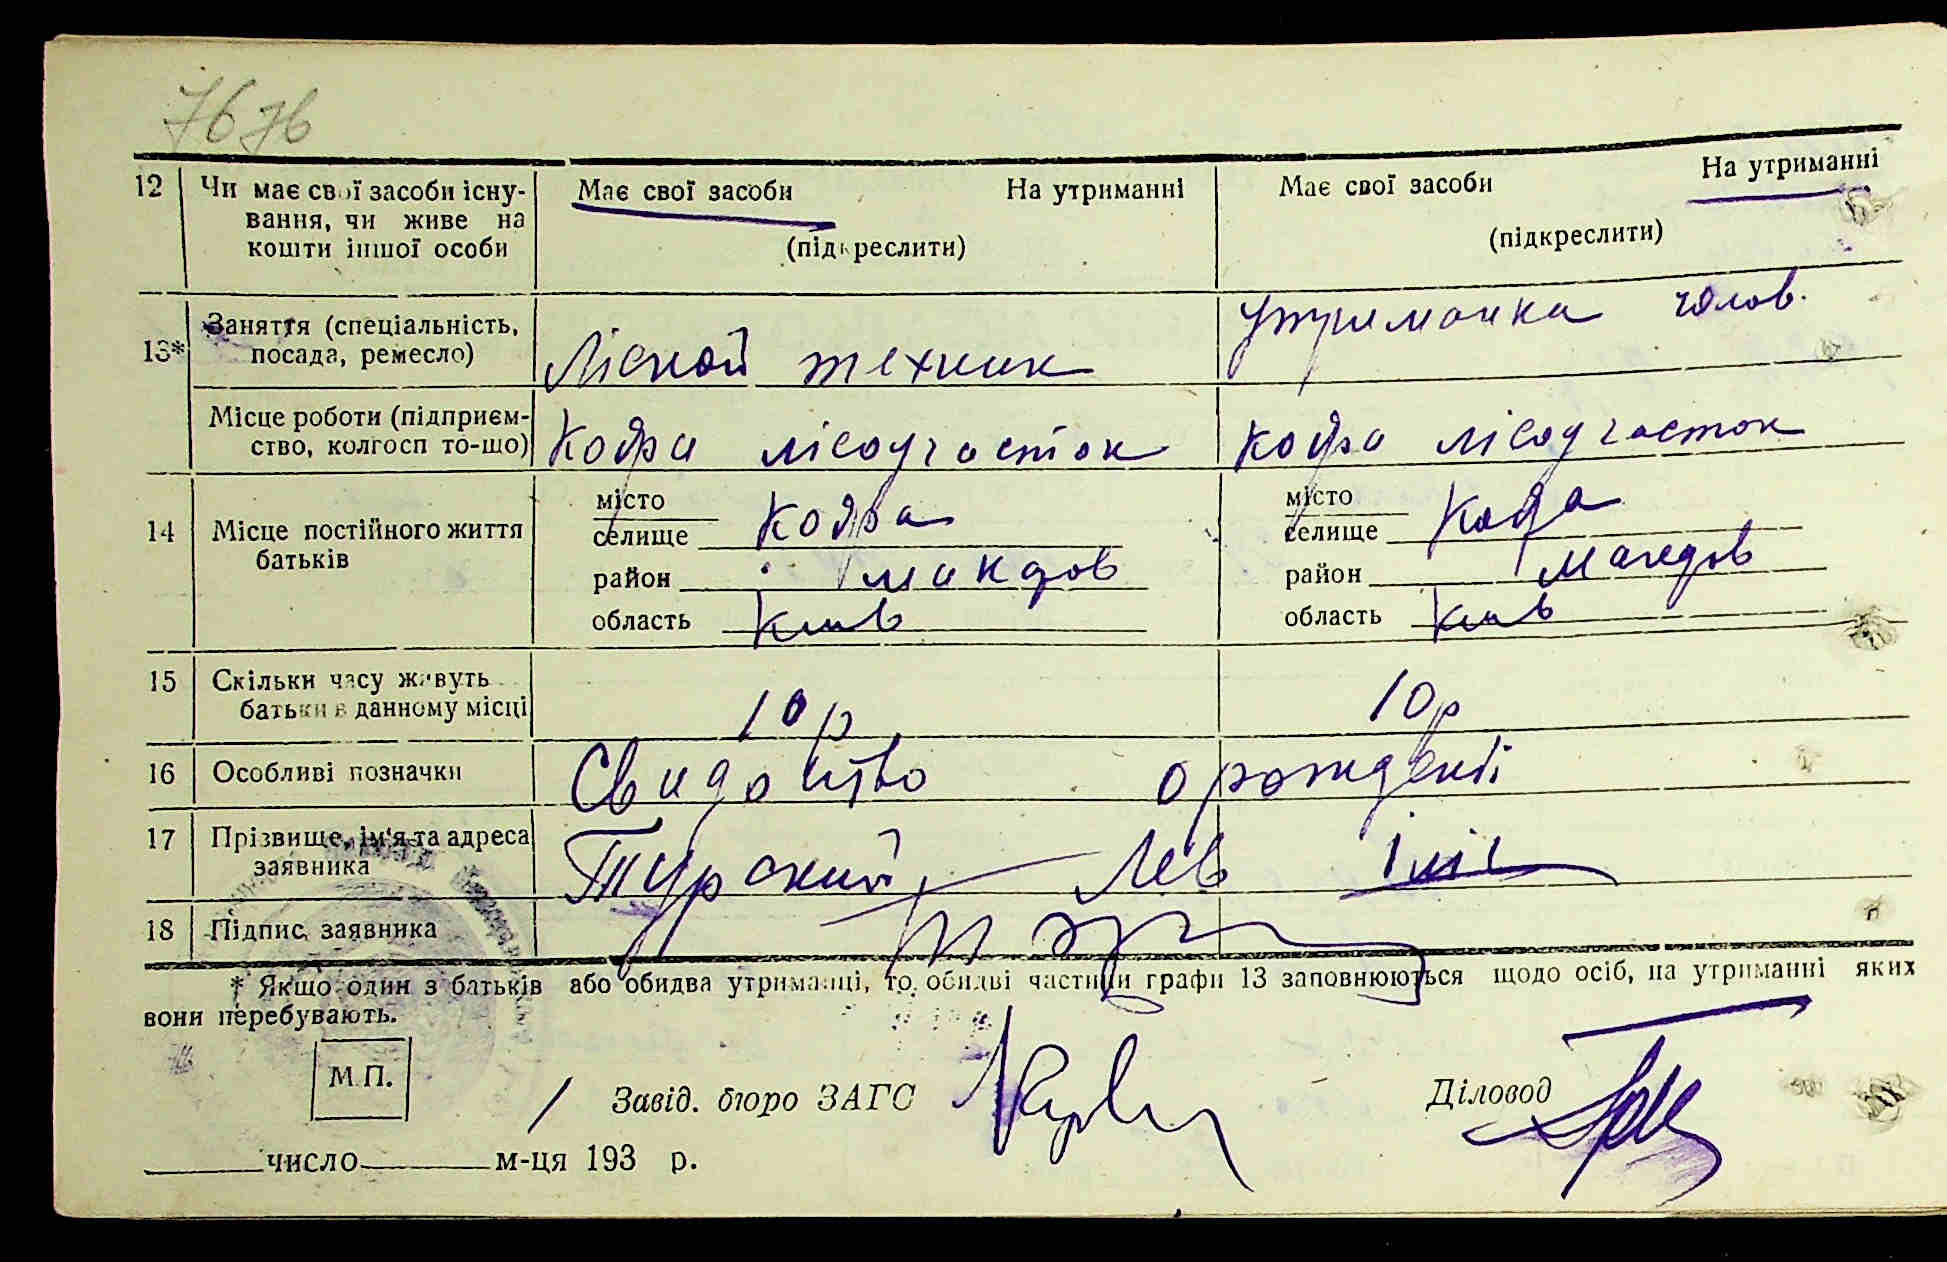 76 76
12 Чи має свої засоби існу- Має свої засоби На утриманні Має свої засоби На утриманні
вання, чи живе на
кошти іншої особи (підкреслити) (підкреслити)
13* Заняття (спеціальність, Утриманка чолов.
посада, ремесло) Лісной технік
Місце роботи (підприєм-
ство, колгосп то-що) Кодра лісоучасток Кодра лісоучасток
місто місто
14 Місце постійного життя селище Кодра селище Кодра
батьків район Макаров район Макаров
область Київ область Київ
15 Скільки часу живуть
батьки в данному місці 10 р 10 р
16 Особливі позначки Свидоцтво о рожденіі
17 Прізвище, ім'я та адреса Турский Лев Ілліч
заявника
18 Підпис заявника
* Якщо один з батьків або обидва утриманці, то обидві частини графи 13 заповнюються щодо осіб, на утриманні яких
вони перебувають.
М.П.
Завід. бюро ЗАГС Діловод
число м-ця 193 р.